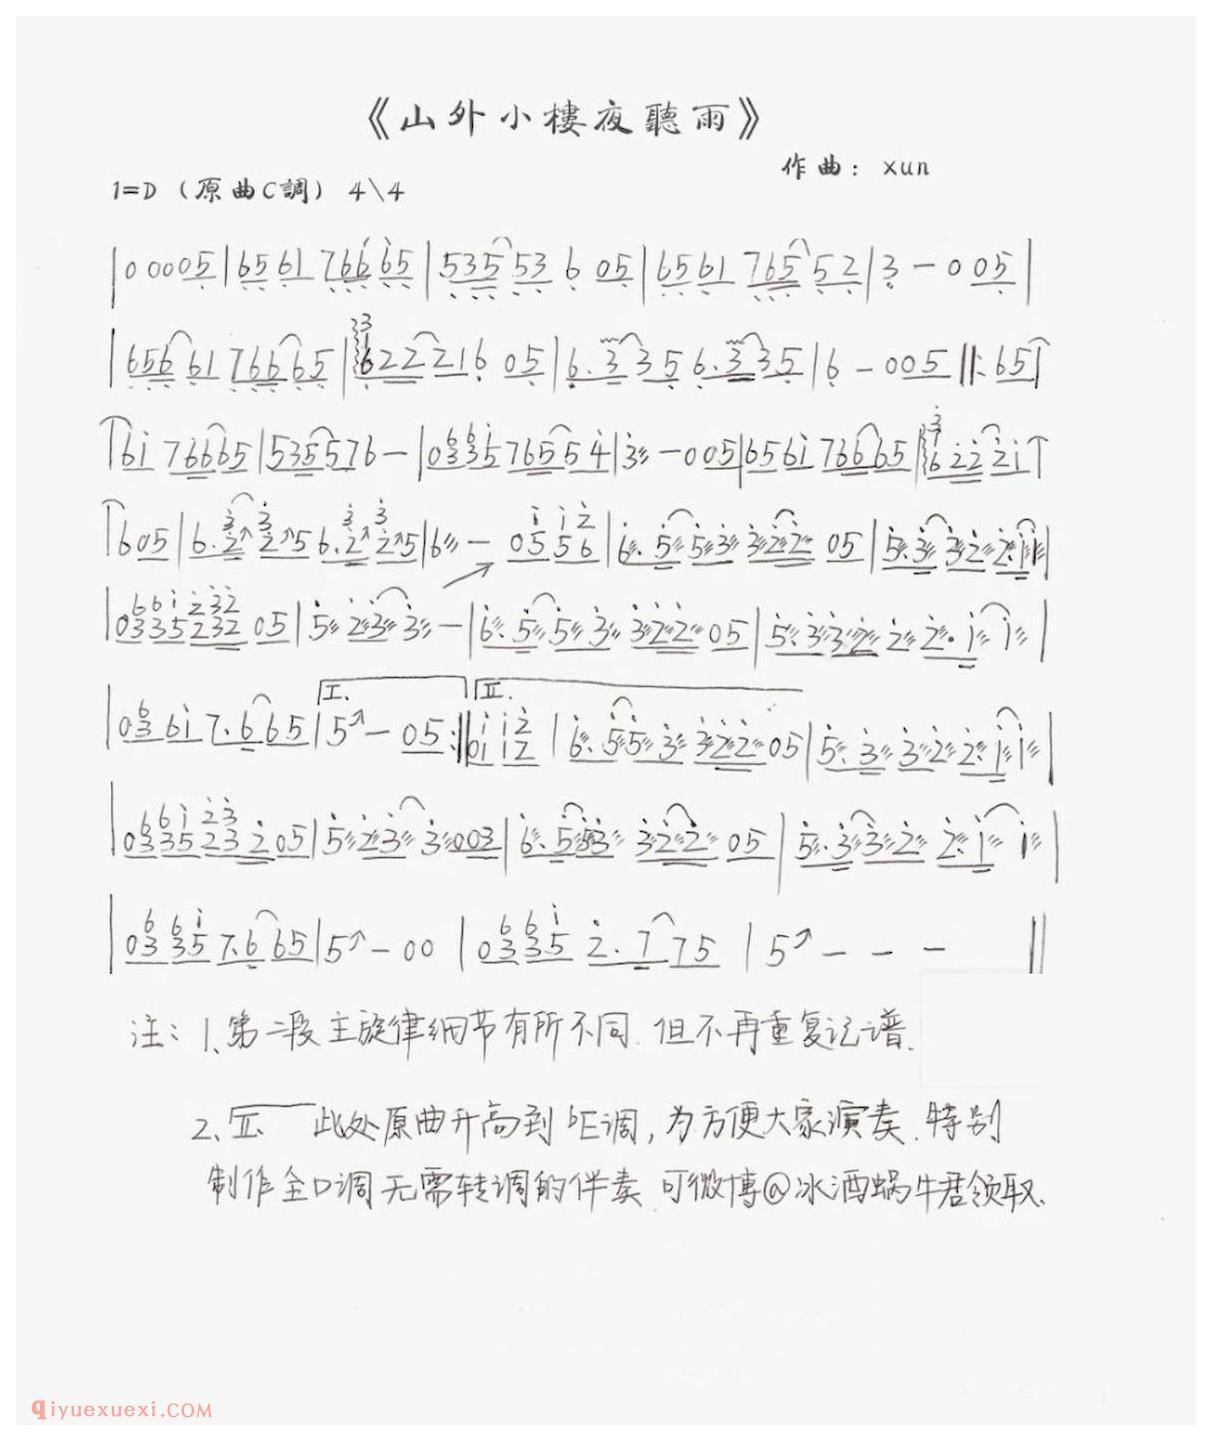 《山外小樓夜聽雨》
作曲：xun
1=D（原曲C調）4\4
|0 0 0 0 5|6 5 6 1 7 6 6 6 5|5 3 5 5 3 6 0 5|6 5 6 1 7 6 5 5 2|3 — 0 0 5|
|6 5 6 6 1 7 6 6 6 5|6 2 2 2 1 6 0 5|6. 3 3 5 6. 3 3 5|6 — 0 0 5‖: 6 5
6 1 7 6 6 6 5|5 3 5 5 7 6 —|0 3 3 5 7 6 5 5 4|3 — 0 0 5|6 5 6 1 7 6 6 6 5|6 2 2 2 1
6 0 5|6. 2 2 5 6. 2 2 5|6 — 0 5 5 6|6. 5 5 3 3 2 2 0 5|5. 3 3 2 2. 1 1|
|0 3 3 5 2 3 2 0 5|5 2 3 3 —|6. 5 5 3 3 2 2 0 5|5. 3 3 2 2 2. 1 1|
I. II.
|0 3 6 1 7. 6 6 5|5 — 0 5:‖0 1 1 2|6. 5 5 3 3 2 2 0 5|5. 3 3 2 2. 1 1|
|0 3 3 5 2 3 2 0 5|5 2 3 3 0 0 3|6. 5 5 3 3 2 2 0 5|5. 3 3 2 2. 1 1|
|0 3 3 5 7. 6 6 5|5 — 0 0|0 3 3 5 2. 7 7 5|5 — — — ‖
注：1、第二段主旋律细节有所不同.但不再重复记谱.
2、II. 此处原曲升高到bE调，为方便大家演奏.特别
制作全D调无需转调的伴奏.可微博@冰酒蜗牛君领取.
qiyuexuexi.COM